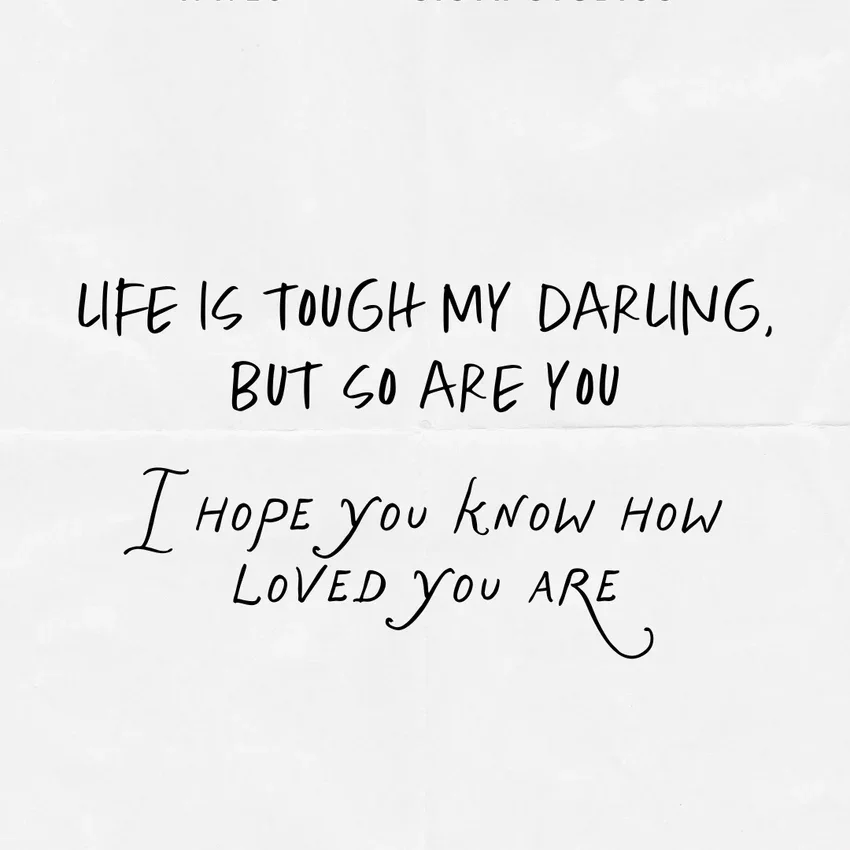 LIFE IS TOUGH MY DARLING,
BUT SO ARE YOU
I HOPE YOU KNOW HOW
LOVED YOU ARE